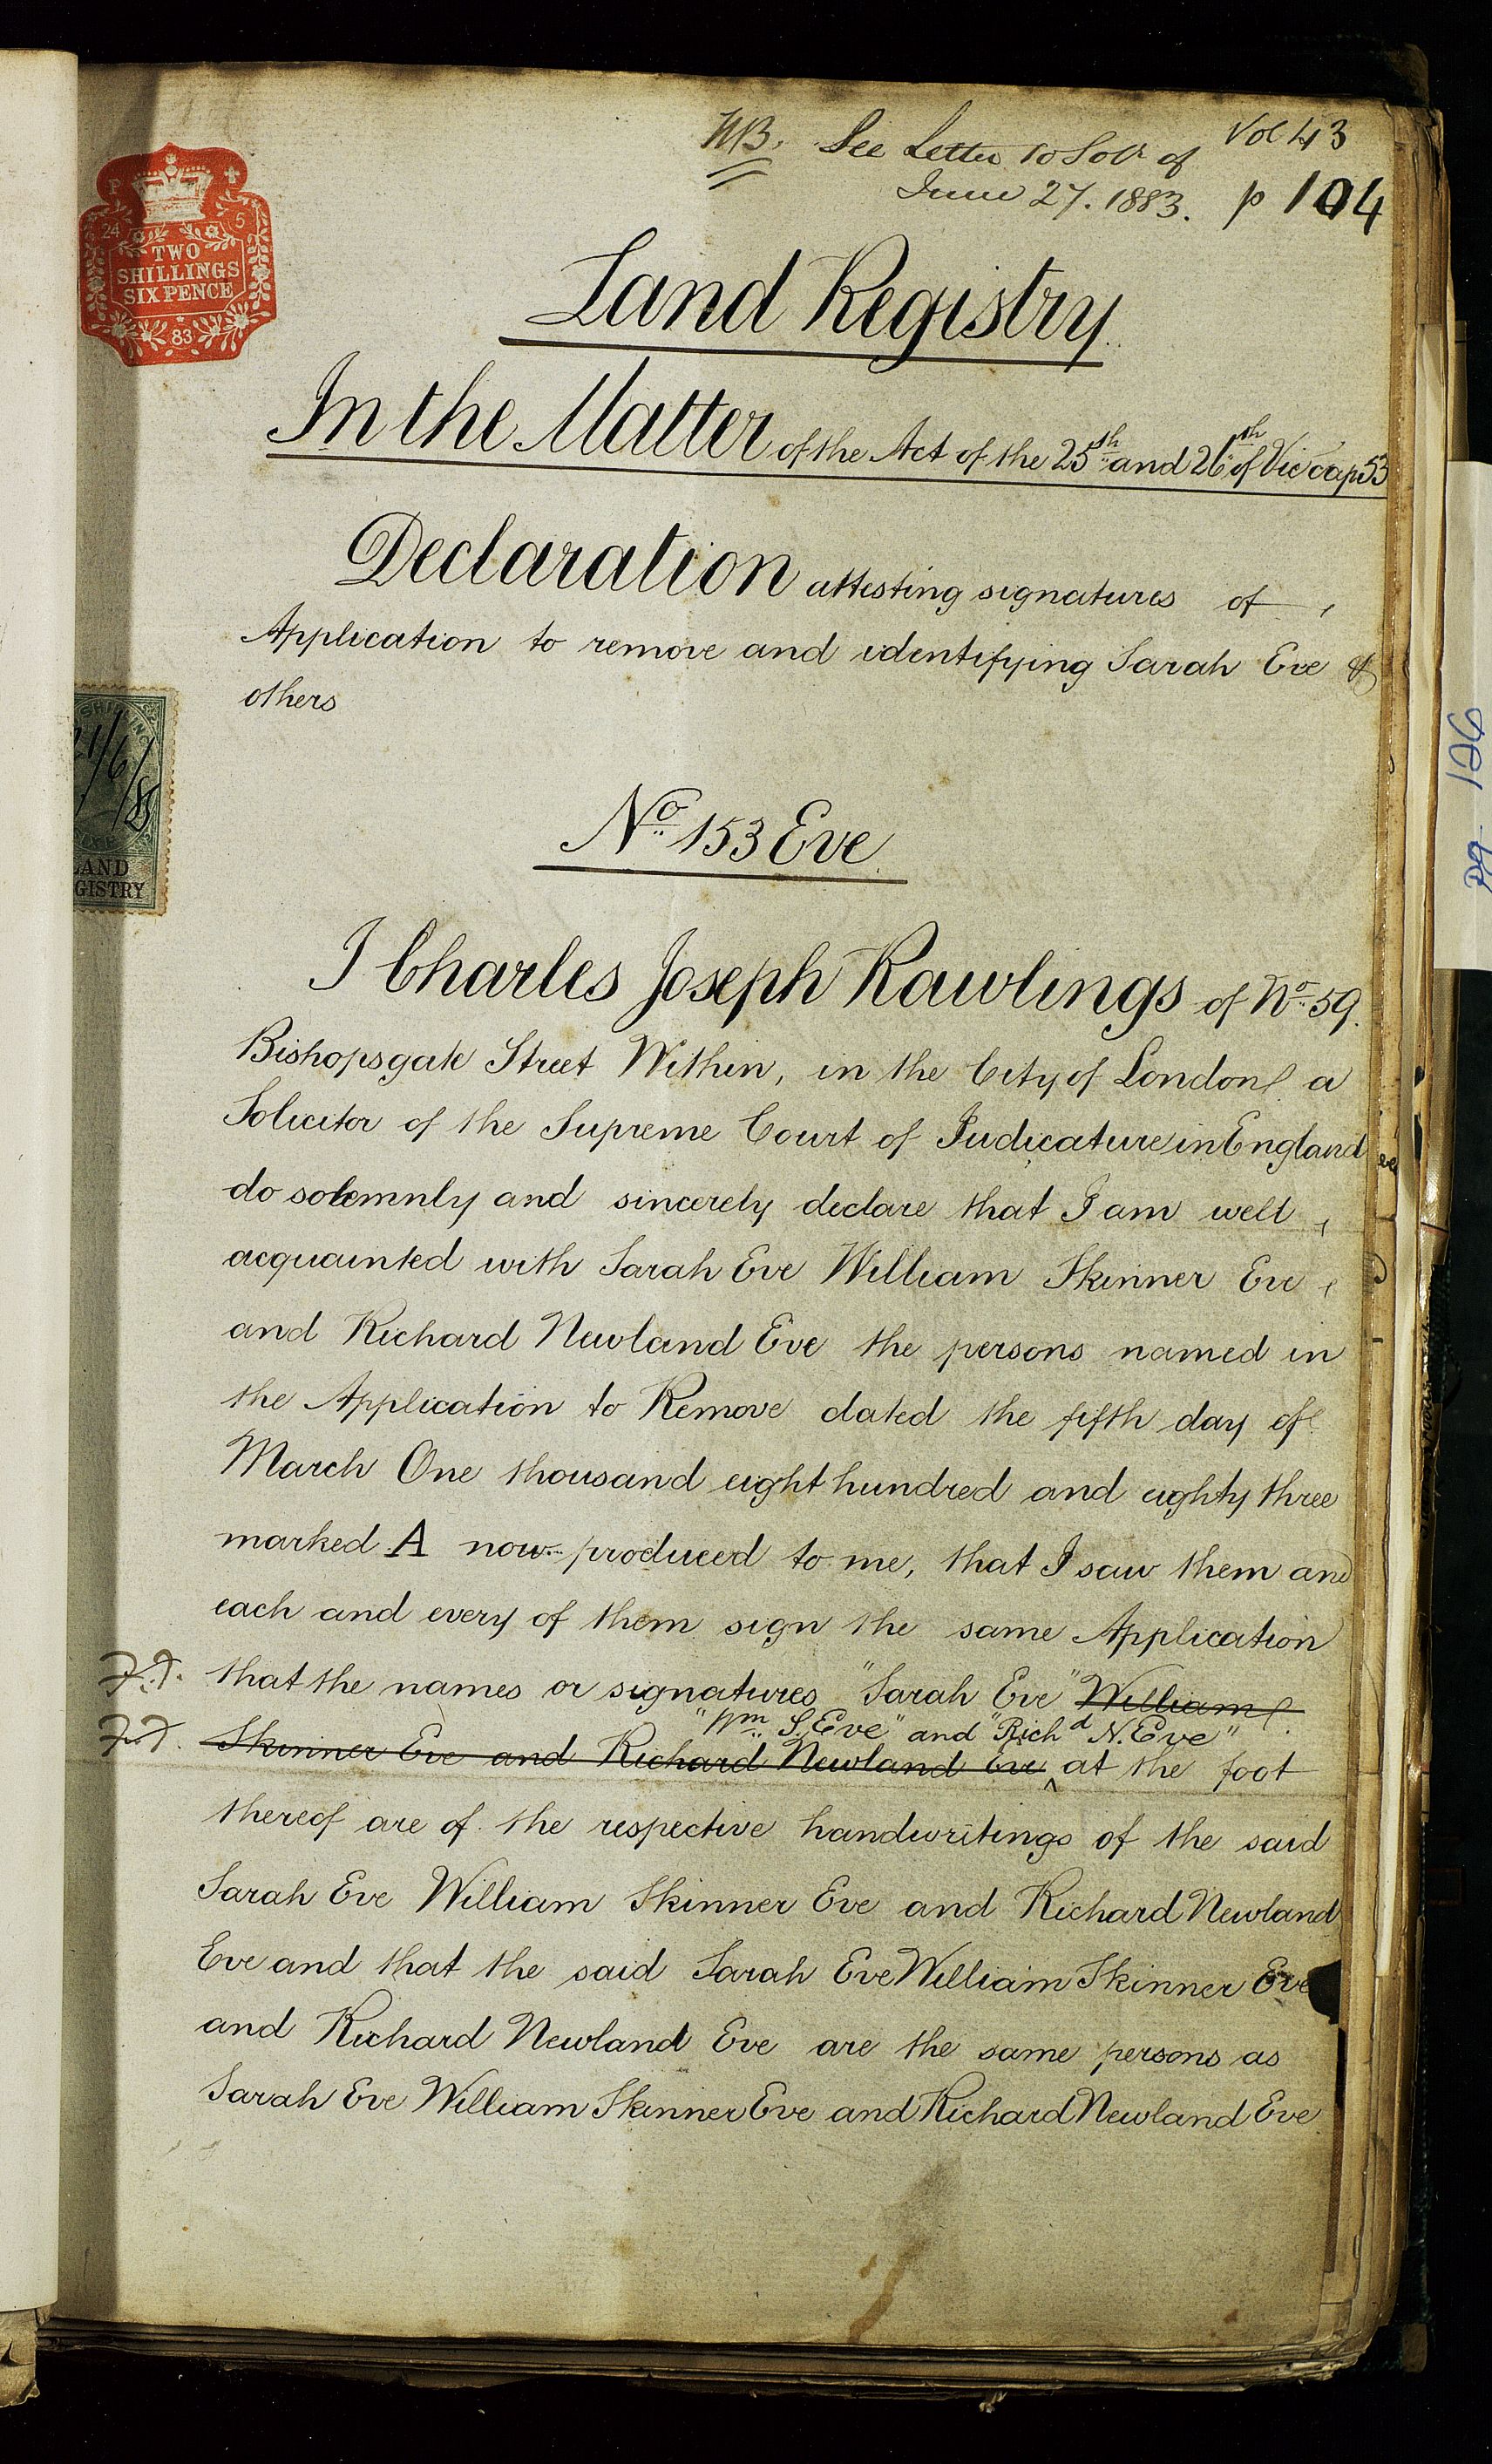 NB. See Letter to Solr of Vol 43
June 27. 1883. p 104
P
24 5
TWO
SHILLINGS
SIX PENCE
83
Land Registry
In the Matter of the Act of the 25th and 26th of Vic cap 53
Declaration attesting signatures of
Application to remove and identifying Sarah Eve &
others
21/6/83
LAND
GISTRY
No 153 Eve
I Charles Joseph Rawlings of No 59.
Bishopsgate Street Within, in the City of London a
Solicitor of the Supreme Court of Judicature in England
do solemnly and sincerely declare that I am well
acquainted with Sarah Eve William Skinner Eve
and Richard Newland Eve the persons named in
the Application to Remove dated the fifth day of
March One thousand eight hundred and eighty three
marked A now produced to me, that I saw them and
each and every of them sign the same Application
that the names or signatures "Sarah Eve" William
"Wm S. Eve" and "Richd N. Eve"
Skinner Eve and Richard Newland Eve at the foot
thereof are of the respective handwritings of the said
Sarah Eve William Skinner Eve and Richard Newland
Eve and that the said Sarah Eve William Skinner Eve
and Richard Newland Eve are the same persons as
Sarah Eve William Skinner Eve and Richard Newland Eve
pg 126